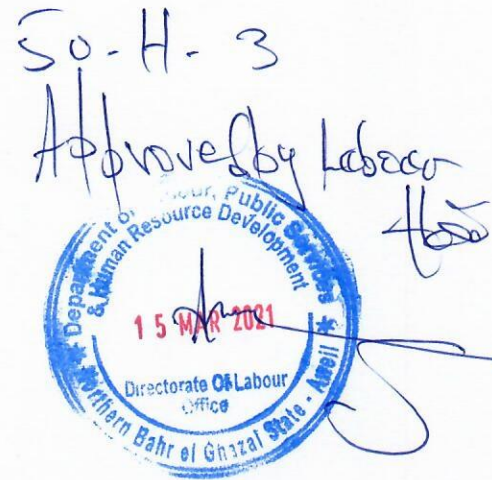 50-H-3
Approved by Labour
Department of Labour, Public Services
& Human Resource Development
15 MAR 2021
Directorate Of Labour
Office
Northern Bahr el Ghazal State - Aweil